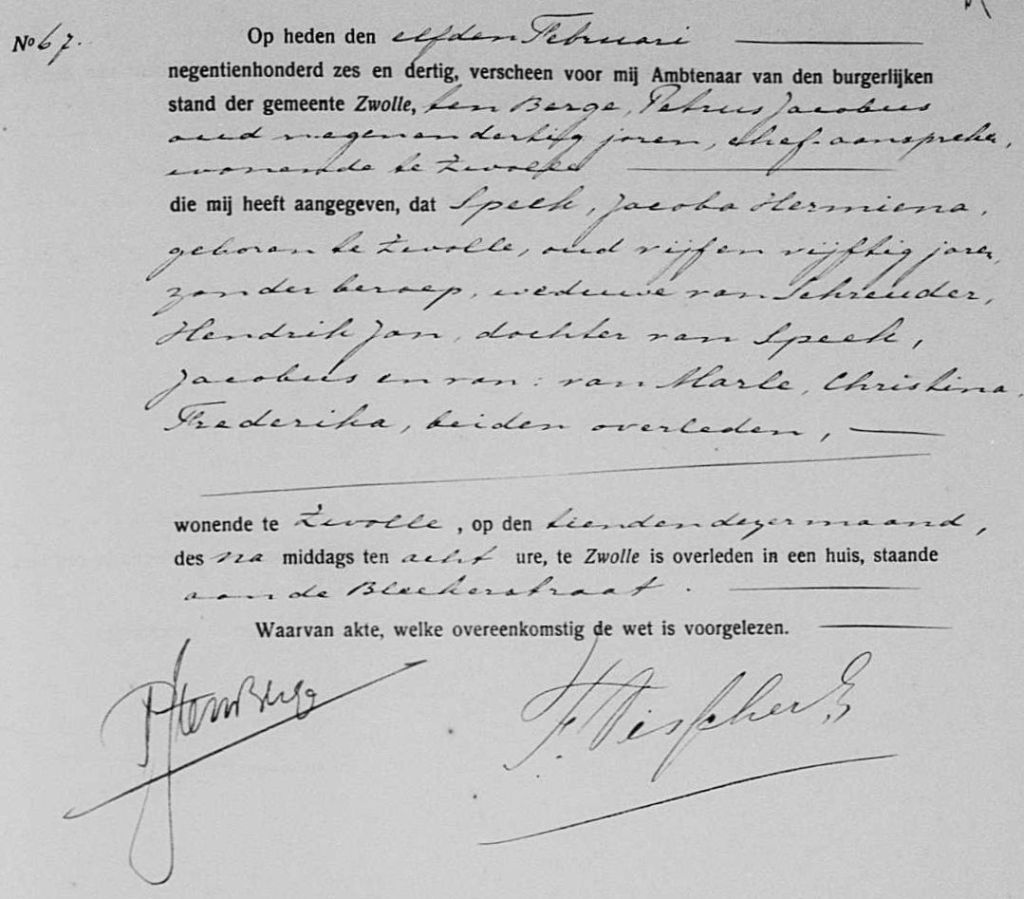 No 67.
Op heden den elfden Februari
negentienhonderd zes en dertig, verscheen voor mij Ambtenaar van den burgerlijken
stand der gemeente Zwolle, ten Berge, Petrus Jacobus
oud negen en dertig jaren, chef-aanspreker,
wonende te Zwolle
die mij heeft aangegeven, dat Speek, Jacoba Hermiena,
geboren te Zwolle, oud vijf en vijftig jaren,
zonder beroep, weduwe van Schreuder,
Hendrik Jan, dochter van Speek,
Jacobus en van: van Marle, Christina
Frederika, beiden overleden,
wonende te Zwolle, op den tienden dezer maand,
des na middags ten acht ure, te Zwolle is overleden in een huis, staande
aan de Bleekerstraat.
Waarvan akte, welke overeenkomstig de wet is voorgelezen.
PJtenBerge F. Visscher